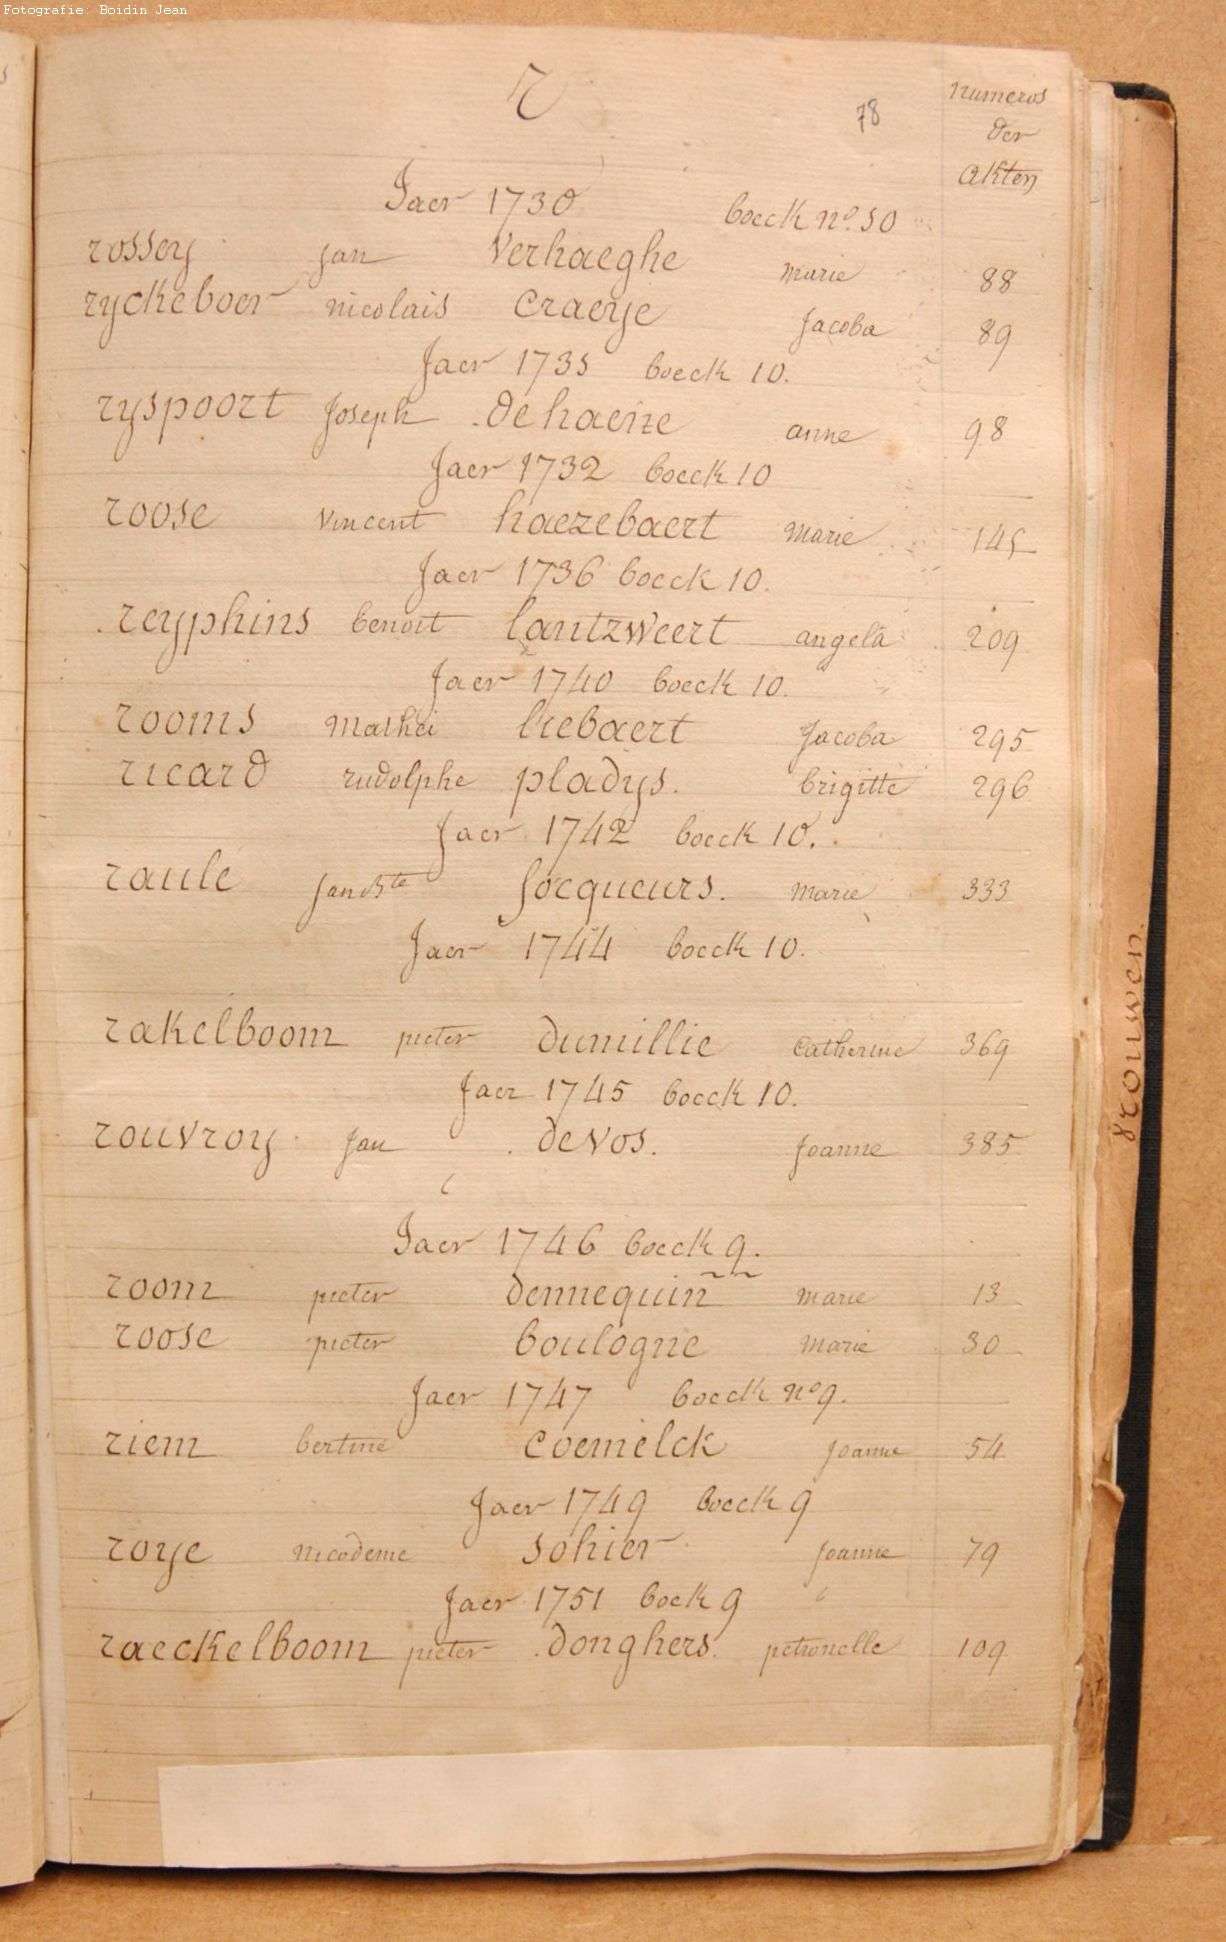 Fotografie: Boidin Jean
r
78
numeros
der
akten
Jaer 1730 boeck no. 10
rossey jan verhaeghe marie 88
ryckeboer nicolais Craeye Jacoba 89
Jaer 1735 boeck 10.
ryspoort Joseph dehaene anne 98
Jaer 1732 boeck 10
roose vincent haezebaert marie 145
Jaer 1736 boeck 10.
reyphins benoit lantzweert angela 209
Jaer 1740 boeck 10.
rooms Mathei liebaert Jacoba 295
ricard rudolphe pladys. brigitte 296
Jaer 1742 boeck 10.
raule jan Bte Jocqueurs. marie 333
Jaer 1744 boeck 10.
rakelboom pieter dumillie Catherine 369
Jaer 1745 boeck 10.
rouvroy jan devos. Joanne 385
Jaer 1746 boeck 9.
room pieter dennequin marie 13
roose pieter boulogne marie 30
Jaer 1747 boeck no 9.
riem bertine Coemelck joanne 54
Jaer 1749 boeck 9
roye nicodeme sohier joanne 79
Jaer 1751 boek 9
raeckelboom pieter donghers. petronelle 109
vrouwen